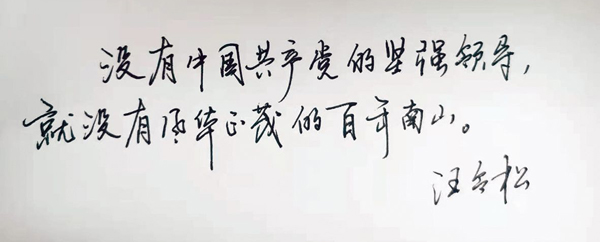 没有中国共产党的坚强领导,
就没有风华正茂的百年南山。
汪令松